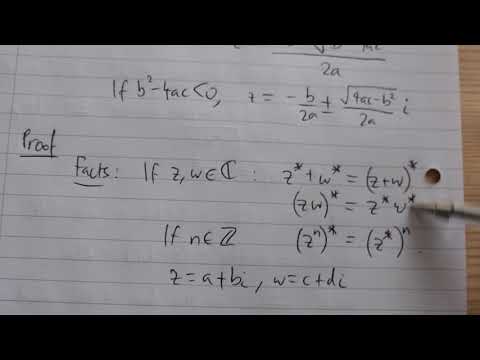 2a
If b²-4ac<0, z = -b/2a ± √(4ac-b²)/2a i
Proof
Facts: If z,w∈ℂ : z*+w* = (z+w)*
(zw)* = z*w*
If n∈ℤ (zⁿ)* = (z*)ⁿ.
z=a+bi, w=c+di